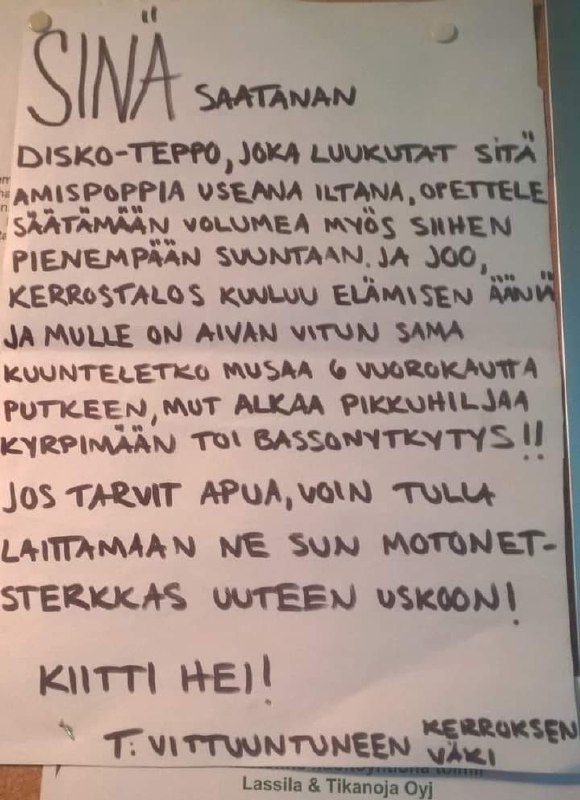 SINÄ SAATANAN
DISKO-TEPPO, JOKA LUUKUTAT SITÄ
AMISPOPPIA USEANA ILTANA, OPETTELE
SÄÄTÄMÄÄN VOLUMEA MYÖS SIIHEN
PIENEMPÄÄN SUUNTAAN. JA JOO,
KERROSTALOS KUULUU ELÄMISEN ÄÄNIÄ
JA MULLE ON AIVAN VITUN SAMA
KUUNTELETKO MUSAA 6 VUOROKAUTTA
PUTKEEN, MUT ALKAA PIKKUHILJAA
KYRPIMÄÄN TOI BASSONYTKYTYS!!
JOS TARVIT APUA, VOIN TULLA
LAITTAMAAN NE SUN MOTONET-
STERKKAS UUTEEN USKOON!
KIITTI HEI!
T: VITTUUNTUNEEN KERROKSEN
VÄKI
Lassila & Tikanoja Oyj